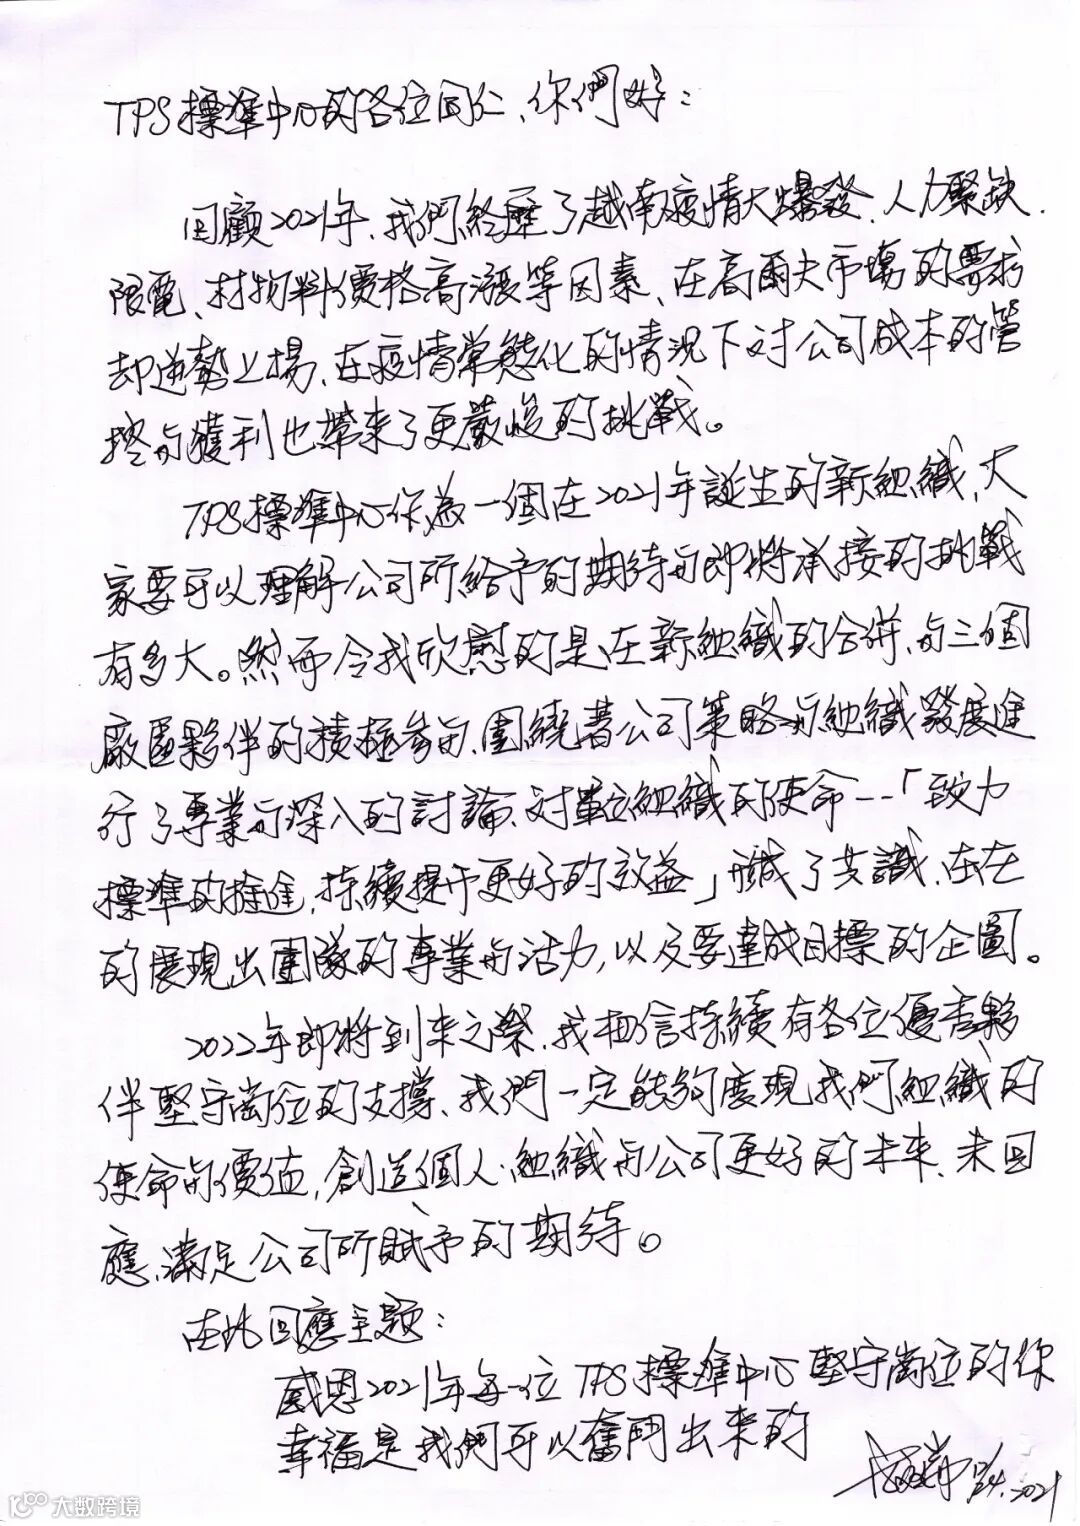 TPS標準中心的各位同仁、你們好：
回顧2021年、我們經歷了越南疫情大爆發、人力緊缺、
限電、材物料價格高漲等因素、在高爾夫市場的需求
却逆勢上揚、在疫情常態化的情況下对公司成本的管
控与獲利也帶來了更嚴峻的挑戰。
TPS標準中心作為一個在2021年誕生的新組織、大
家要可以理解公司所給予的期待与即將承接的挑戰
有多大。然而令我欣慰的是、在新組織的合併、与三個
廠區夥伴的積極參与、圍繞著公司策略与組織發展進
行了專業与深入的討論、对單位組織的使命--「致力
標準的推進，持續提升更好的效益」形成了共識、在在
的展現出團隊的專業与活力，以及要達成目標的企圖。
2022年即將到來之際、我相信持續有各位優秀夥
伴堅守崗位的支撐、我們一定能夠展現我們組織的
使命与價值，創造個人、組織与公司更好的未來、來回
應、滿足公司所賦予的期待。
在此回應主題：
感恩2021年每一位TPS標準中心堅守崗位的你
幸福是我們可以奮鬥出來的
12/24.2021
大数跨境